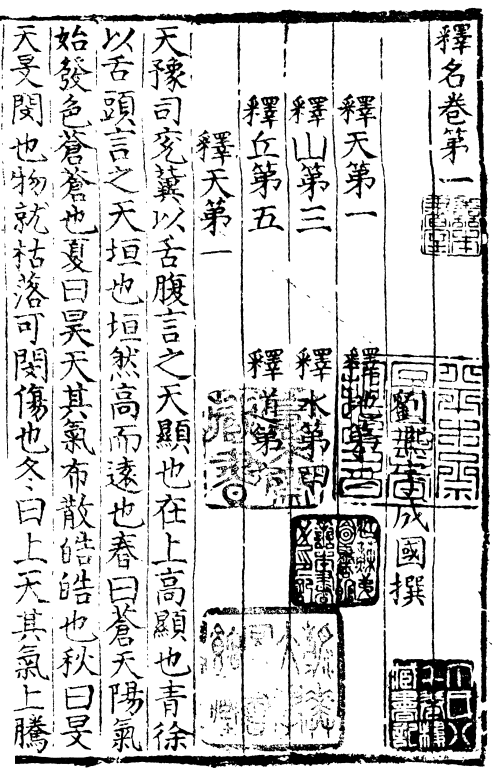 釋名卷第一
劉熙字成國撰
釋天第一　釋地第二
釋山第三　釋水第四
釋丘第五　釋道第
釋天第一
天豫司兖冀以舌腹言之天顯也在上高顯也青徐
以舌頭言之天垣也垣然高而遠也春曰蒼天陽氣
始發色蒼蒼也夏曰昊天其氣布散皓皓也秋曰旻
天旻閔也物就枯落可閔傷也冬曰上天其氣上騰